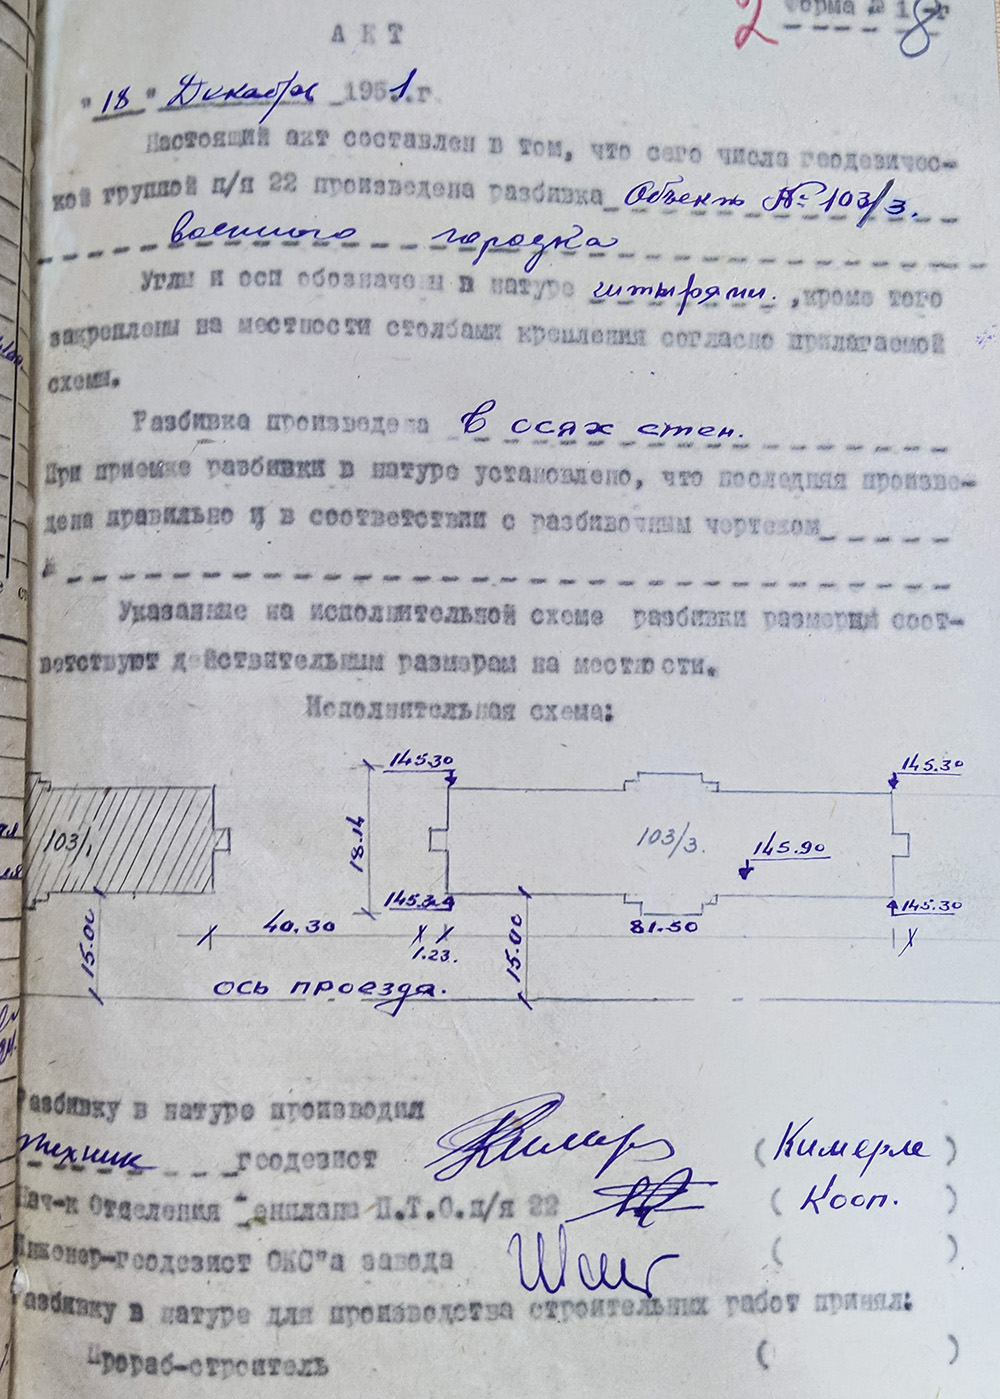 2
Форма № 1-г
8
АКТ
"18" Декабря 1951.г.
Настоящий акт составлен в том, что сего числа геодезичес-
кой группой п/я 22 произведена разбивка Объект № 103/3.
военного городка
Углы и оси обозначены в натуре штырями. ,кроме того
закреплены на местности столбами крепления согласно прилагаемой
схемы.
Разбивка произведена в осях стен.
При приемке разбивки в натуре установлено, что последняя произве-
дена правильно и в соответствии с разбивочным чертежом
Указанные на исполнительной схеме разбивки размеры соот-
ветствуют действительным размерам на местности.
Исполнительная схема:
145.30 145.30
103/1. 18.14 103/3. 145.90
145.30 145.30
15.00 40.30 1.23. 15.00 81.50
ось проезда.
Разбивку в натуре производил
техник геодезист (Кимерле)
Нач-к Отделения Генплана П.Т.О.п/я 22 (Кооп.)
Инженер-геодезист ОКС"а завода ( )
Разбивку в натуре для производства строительных работ принял:
Прораб-строитель ( )